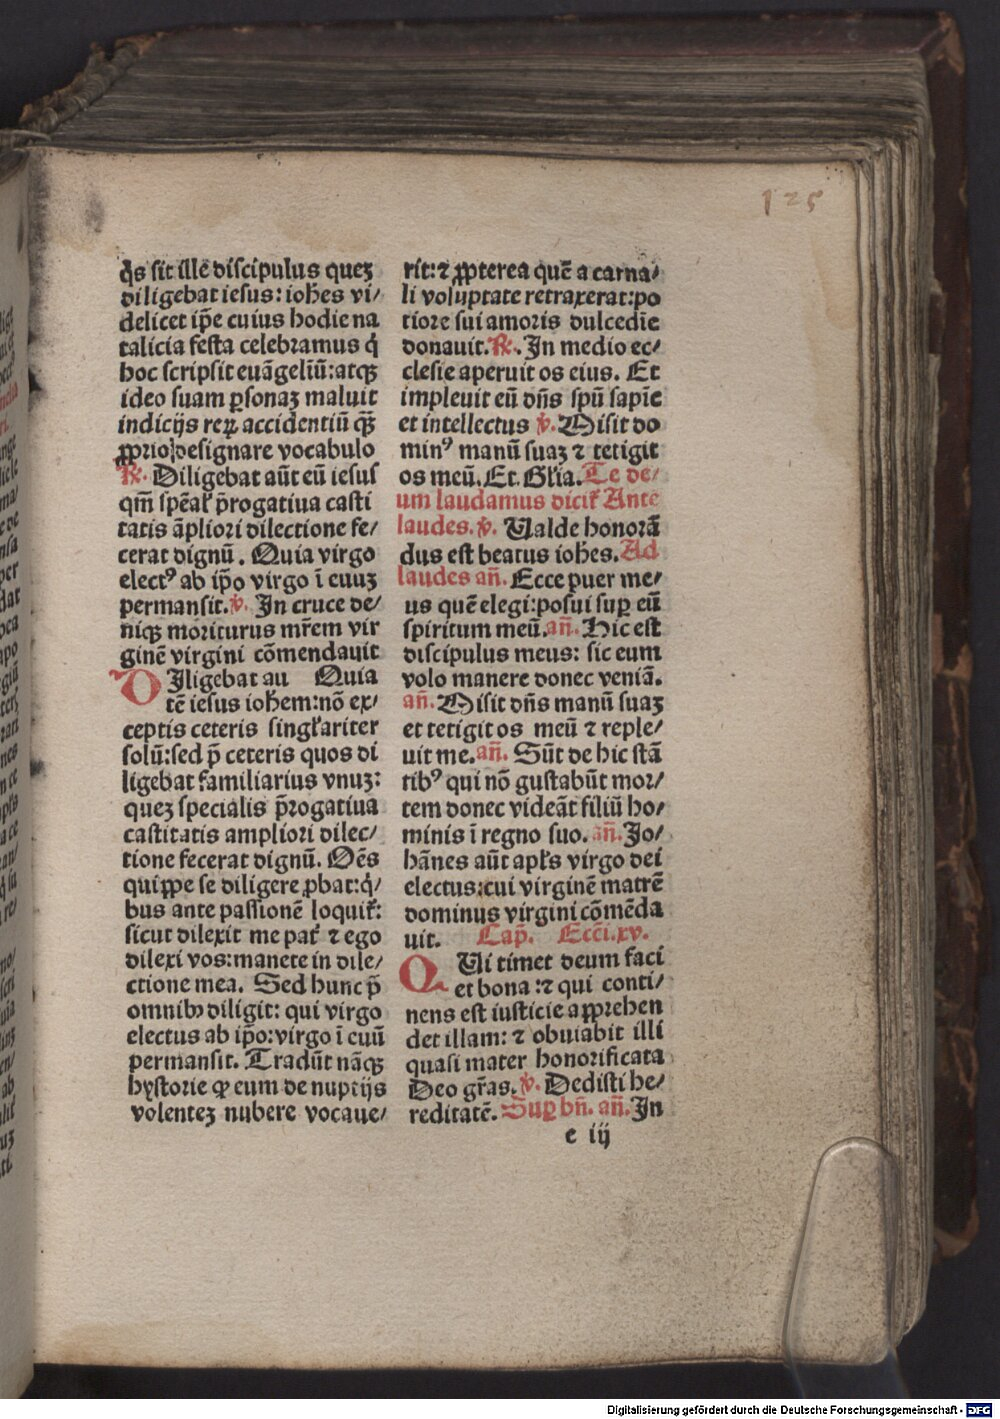 125
q̃s sit ille discipulus quez
diligebat iesus: ioh̃es vi/
delicet ip̃e cuius hodie na
talicia festa celebramus q̇
hoc scripsit euãgeliũ: atqꝫ
ideo suam ꝑsonaꝫ maluit
indicijs reꝝ accidentiũ qꝫ̃
ꝓprio designare vocabulo
℟. Diligebat aũt eũ iesus
qm̃ spẽal᷑ p̃rogatiua casti
tatis ãpliori dilectione fe/
cerat dignũ. Quia virgo
electꝰ ab ip̃o virgo ĩ euuꝫ
permansit. ℣. In cruce de/
niqꝫ moriturus mr̃em vir
ginẽ virgini cõmendauit
DIligebat au Quia
tẽ iesus ioh̃em: nõ ex/
ceptis ceteris singl᷑ariter
solũ: sed p̃ ceteris quos di
ligebat familiarius vnuꝫ:
queꝫ specialis p̃rogatiua
castitatis ampliori dilec/
tione fecerat dignũ. Oẽs
quippe se diligere ꝓbat: q̇/
bus ante passionẽ loquit᷑:
sicut dilexit me pat᷑ ⁊ ego
dilexi vos: manete in dile/
ctione mea. Sed hunc p̃
omnibꝰ diligit: qui virgo
electus ab ip̃o: virgo ĩ euũ
permansit. Tradũt nãqꝫ
hystorie ꝙ eum de nuptijs
volenteꝫ nubere vocaue/
rit: ⁊ ꝓpterea quẽ a carna/
li voluptate retraxerat: po
tiore sui amoris dulcedĩe
donauit. ℟. In medio ec/
clesie aperuit os eius. Et
impleuit eũ dñs spũ sapiẽ
et intellectus ℣. Misit do
minꝰ manũ suaꝫ ⁊ tetigit
os meũ. Et. Gl᷑ia. Te de/
um laudamus dicit᷑ Ante
laudes. ℣. Valde honorã
dus est beatus ioh̃es. Ad
laudes añ. Ecce puer me/
us quẽ elegi: posui suꝑ eũ
spiritum meũ. añ. Hic est
discipulus meus: sic eum
volo manere donec veniã.
añ. Misit dñs manũ suaꝫ
et tetigit os meũ ⁊ reple/
uit me. añ. Sũt de hic stã
tibꝰ qui nõ gustabũt mor/
tem donec videãt filiũ ho/
minis ĩ regno suo. añ. Jo/
hãnes aũt apl᷑s virgo dei
electus: cui virginẽ matrẽ
dominus virgini cõmẽda
uit. Cap̃. Ecci. xv.
QUi timet deum faci
et bona: ⁊ qui conti/
nens est iusticie apprehen
det illam: ⁊ obuiabit illi
quasi mater honorificata
Deo gr̃as. ℣. Dedisti he/
reditatẽ. Suꝑ bñ. añ. In
e iij
Digitalisierung gefördert durch die Deutsche Forschungsgemeinschaft - DFG